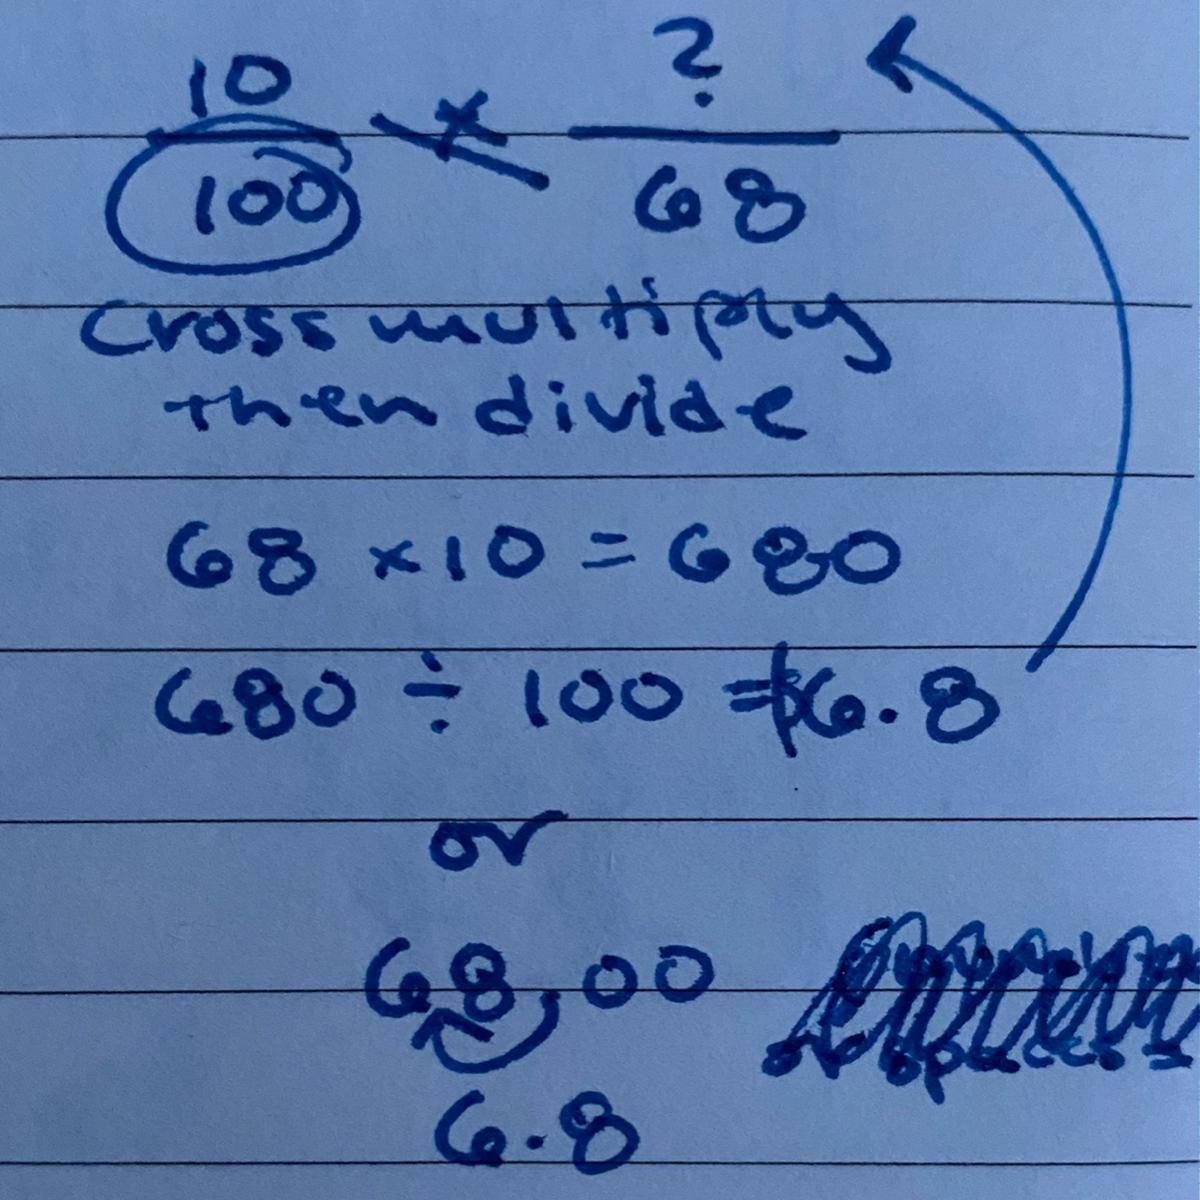 10 × ?
100 68
cross multiply
then divide
68 × 10 = 680
680 ÷ 100 = $6.8
or
68.00
6.8